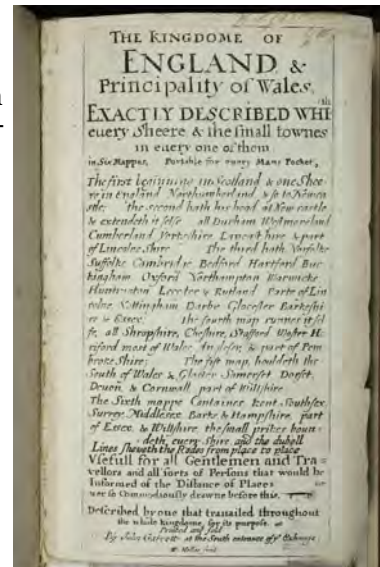 THE KINGDOME OF
ENGLAND &
Principality of Wales,
EXACTLY DESCRIBED WHI th
euery Sheere & the small townes
in euery one of them
in Six Mappes, Portable for euery Mans Pocket,
The first beginning in Scotland & one Shee-
re in England Northumberland & so to Newca
stle; the second hath his head at New castle
& extendeth it selfe all Durham Westmorland
Cumberland Yorkeshire Lancashire & part
of Lincolne Shire The third hath Norfolke
Suffolke Cambridge Bedford Hartford Buc-
kingham Oxford Northampton Warwicke
Huntington Leceter & Rutland Parte of Lin
colne Nottingham Darbe Glocester Barkeshi
re & Essex; The fourth map runnes it sel
fe, all Shropshire, Cheshire, Stafford Woster H-
riford most of Wales & part of Pem
broke Shire; The fift map, houldeth the
South of Wales & Gloster Somerset Dorset,
Deuen, & Cornwall part of Wiltshire
The Sixth mappe Containes Kent Southsex,
Surrey Middlesex Barks & Hampshire, part
of Essex, & Wiltshire, the small prikes boun-
deth, euery Shire, and the dubell
Lines sheweth the Rodes from place to place
Vsefull for all Gentlemen and Tra-
vellors and all sorts of Persons that would be
Informed of the Distance of Places
uer so Commodiously drawne before this.
Described by one that trauailed throughout
the whole kingdome, for its purpose.
Printed and sold
By John Garrett at the South entrance of ye Exchange
W. Hollar fecit